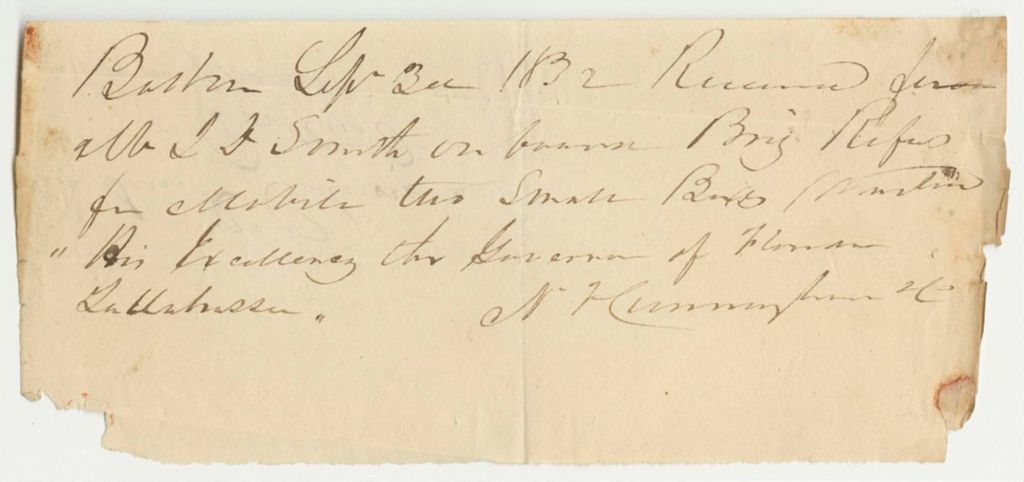 Boston Sepr 3d 1832 Received from
Mr I D Smith on board Brig Rufus
for Mobile two Small Boxes Marked
" His Excellency the Governor of Florida
Tallahassee " N F Cunningham & Co